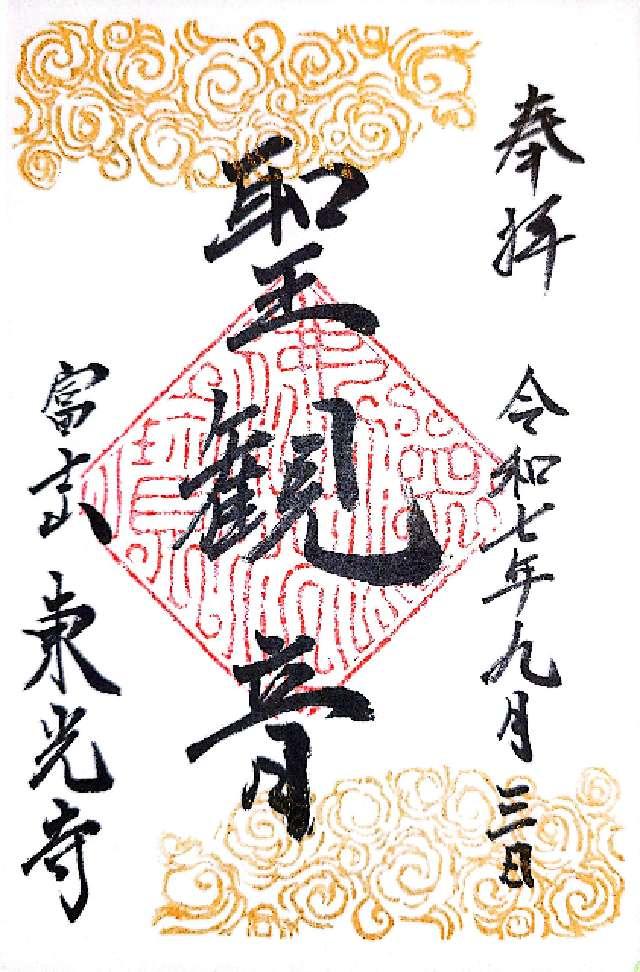 奉拝
令和七年九月三日
聖観音
富士山
東光寺